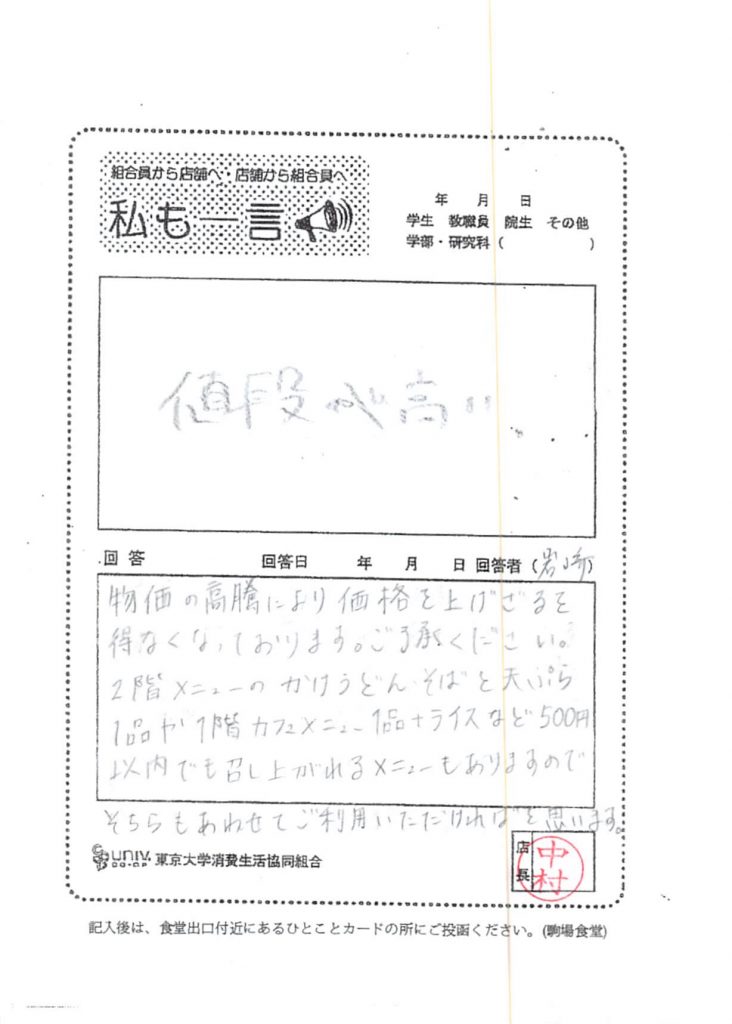 組合員から店舗へ・店舗から組合員へ
私も一言
年 月 日
学生 教職員 院生 その他
学部・研究科 ( )
値段が高い
回答 回答日 年 月 日 回答者 (岩崎)
物価の高騰により価格を上げざるを
得なくなっております。ご了承ください。
2階メニューのかけうどん・そばと天ぷら
1品や1階カフェメニュー1品+ライスなど500円
以内でも召し上がれるメニューもありますので
そちらもあわせてご利用いただければと思います。
UNIV. CO-OP 東京大学消費生活協同組合
店長 中村
記入後は、食堂出口付近にあるひとことカードの所にご投函ください。(駒場食堂)